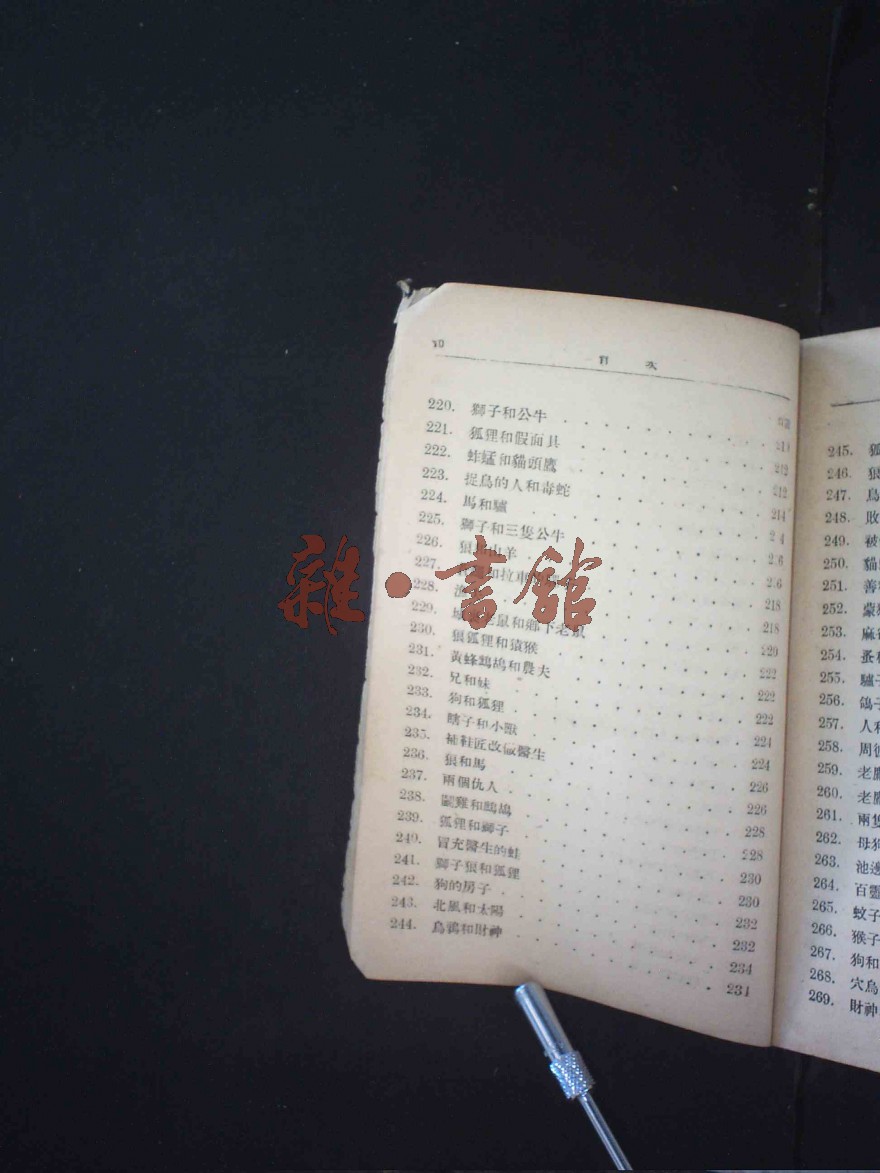 10 目次
頁數
220. 獅子和公牛 210
221. 狐狸和假面具 212
222. 蚱蜢和貓頭鷹 212
223. 捉鳥的人和毒蛇 214
224. 馬和驢
225. 獅子和三隻公牛
226. 狼 山羊
227. 和拉車
228.  218
229. 老鼠和鄉下老鼠 220
230. 狼狐狸和猿猴 222
231. 黃蜂鷓鴣和農夫 222
232. 兄和妹 222
233. 狗和狐狸 224
234. 瞎子和小獸 224
235. 補鞋匠改做醫生 226
236. 狼和馬 226
237. 兩個仇人 228
238. 鬭雞和鷓鴣 228
239. 狐狸和獅子 230
240. 冒充醫生的蛙 230
241. 獅子狼和狐狸 232
242. 狗的房子 232
243. 北風和太陽 234
244. 烏鴉和財神 234
雜·書舘
245.
246. 狼
247.
248. 敗
249. 被
250. 貓
251. 善
252. 蒙
253. 麻雀
254. 蚤
255. 驢子
256. 鴿子
257. 人和
258. 周
259. 老鷹
260. 老鷹
261. 兩隻
262. 母狗
263. 池邊
264. 百靈
265. 蚊子
266. 猴子
267. 狗和
268. 穴鳥
269. 財神